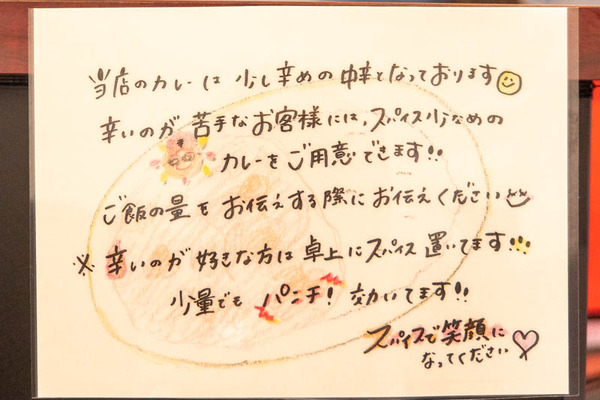 当店のカレーは 少し辛めの中辛となっております
辛いのが苦手なお客様には、スパイス少なめの
カレーをご用意できます!!
ご飯の量も お伝えする際にお伝えください
※辛いのが好きな方は卓上にスパイス置いてます!!
少量でも パンチ! 効いてます!!
スパイスで笑顔に
なってください